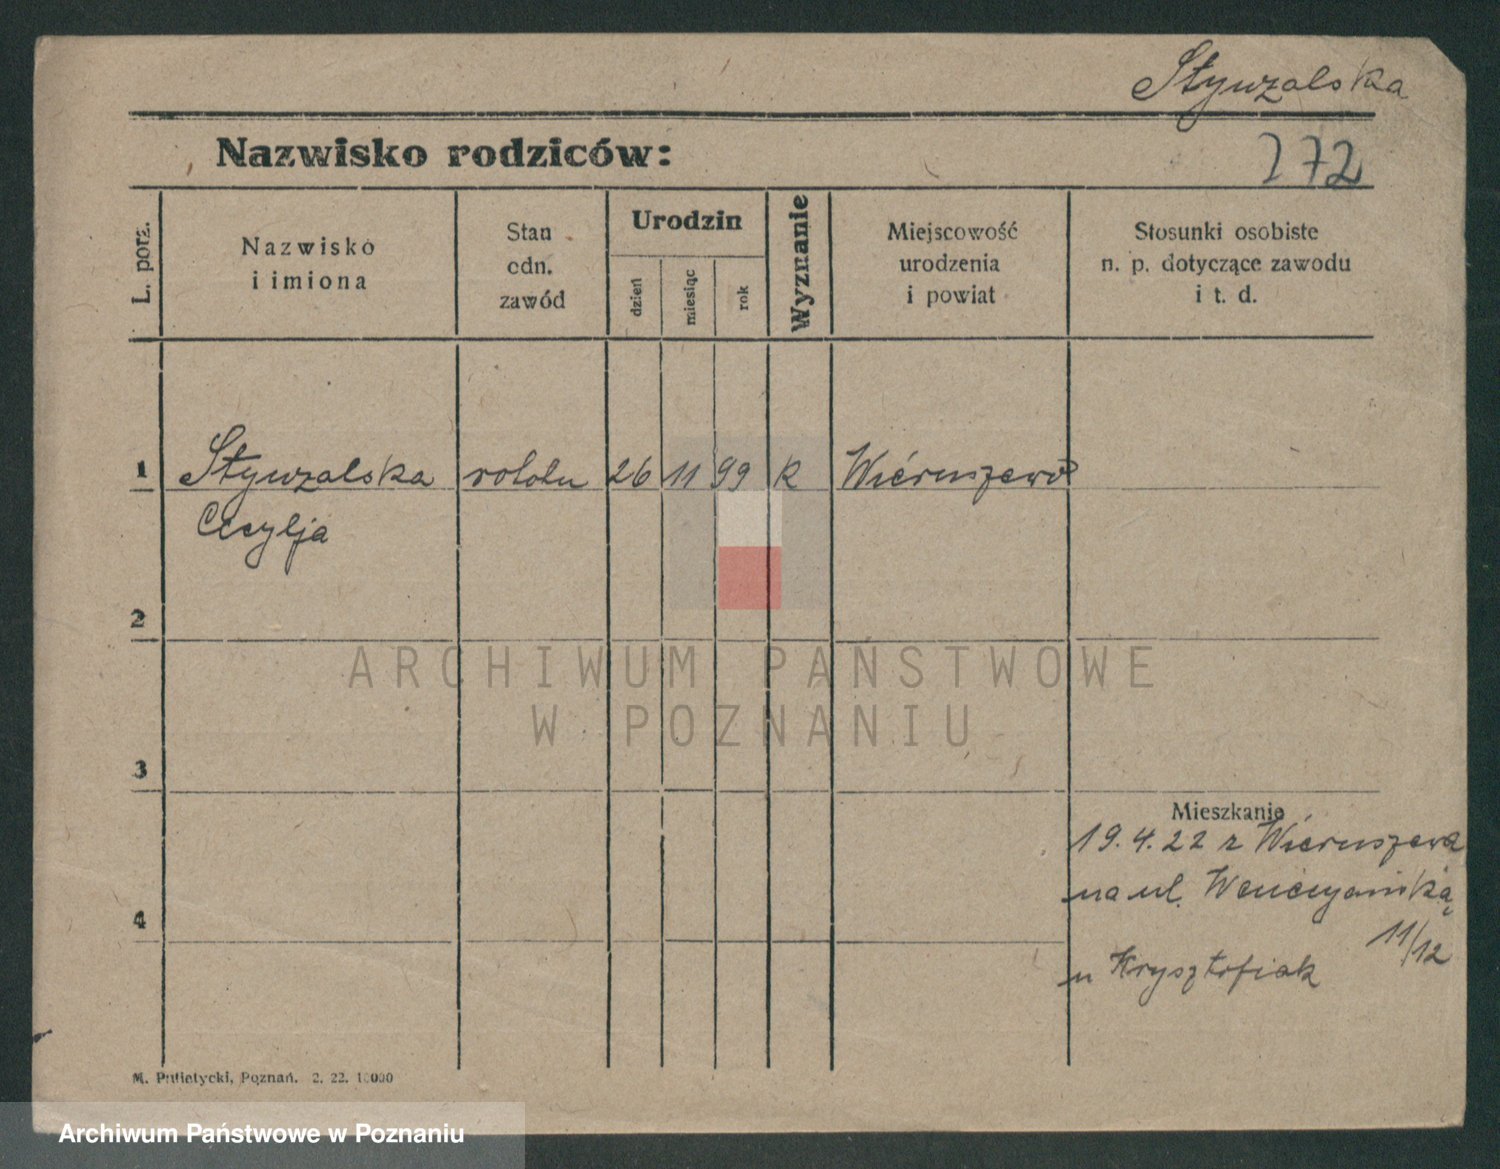 Stywzalska
272
Nazwisko rodziców:
L. porz.
Nazwisko
i imiona
Stan
cdn.
zawód
Urodzin
dzień
miesiąc
rok
Wyznanie
Miejscowość
urodzenia
i powiat
Stosunki osobiste
n. p. dotyczące zawodu
i t. d.
1 Stywzalska robotn 26 11 99 k Wieruszewo
Cecylja
2
ARCHIWUM PAŃSTWOWE
W POZNANIU
3
Mieszkanie
19.4.22 z Wieruszewa
na ul. Wenecjańską
4
11/12
u Krysztofiak
M. Putiatycki, Poznań. 2. 22. 10000
Archiwum Państwowe w Poznaniu